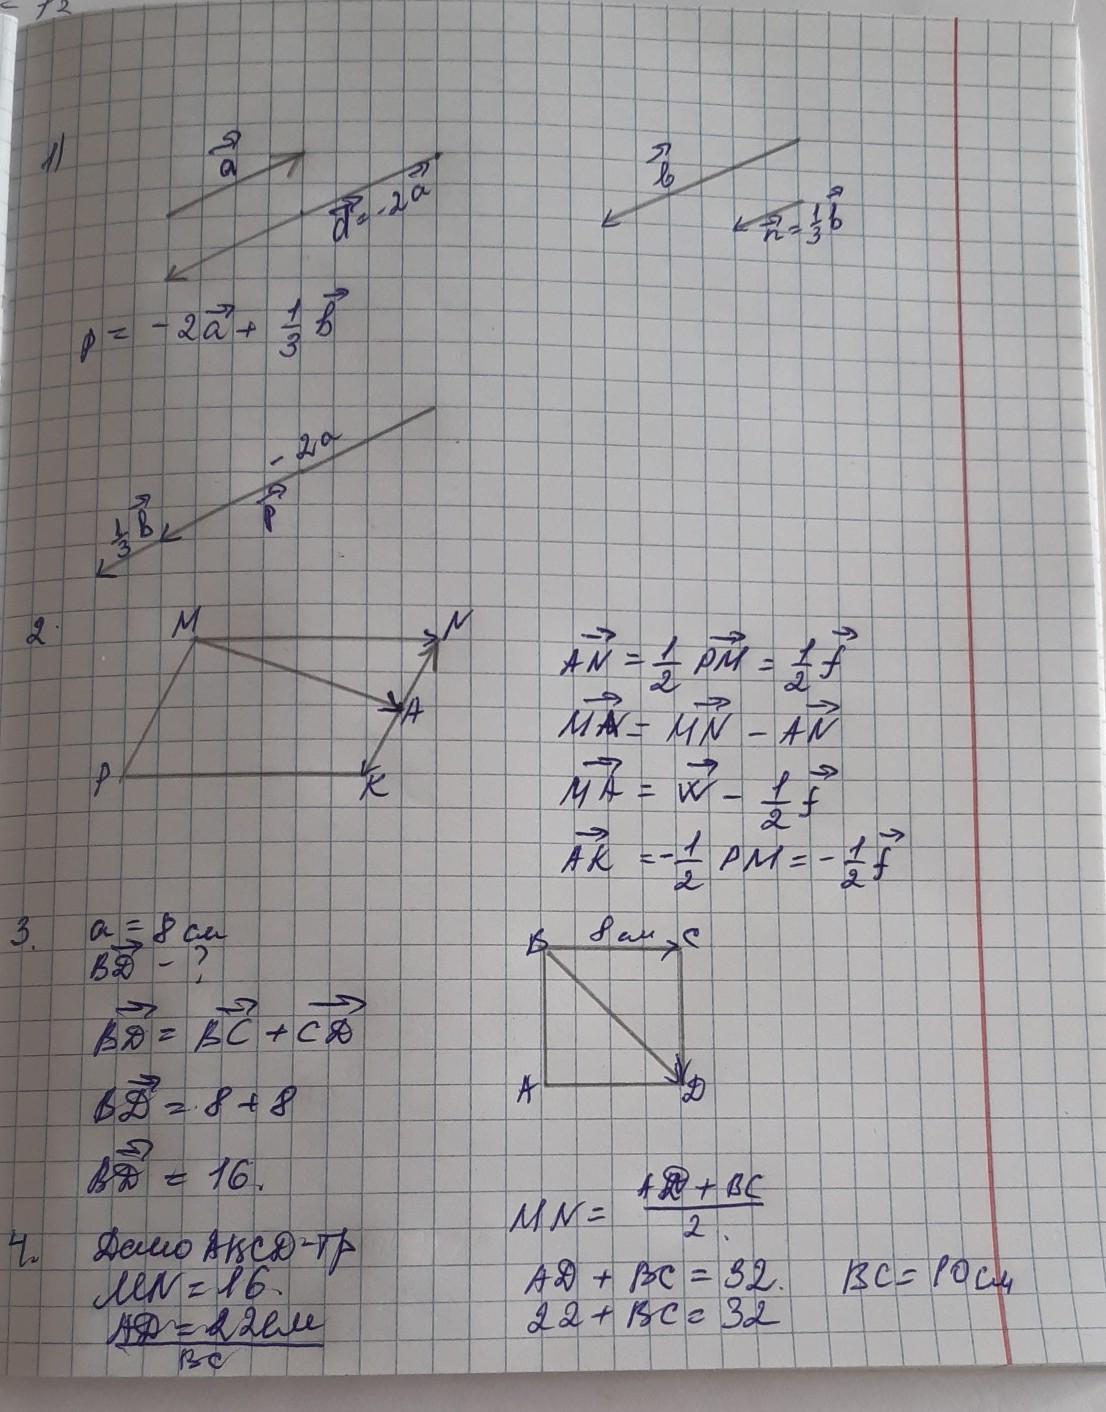 1)
a⃗
d⃗ = -2a⃗
b⃗
n⃗ = 1/3 b⃗
p = -2a⃗ + 1/3 b⃗
-2a
p⃗
1/3 b⃗
2.
M N
A
P K
AN⃗ = 1/2 PM⃗ = 1/2 f⃗
MA⃗ = MN⃗ - AN⃗
MA⃗ = w⃗ - 1/2 f⃗
AK⃗ = -1/2 PM = -1/2 f⃗
3. a = 8 см
BD⃗ - ?
BD⃗ = BC⃗ + CD⃗
BD⃗ = 8 + 8
BD⃗ = 16.
B 8 см C
A D
4. Дано ABCD-тр
MN = 16.
AD = 22 см
BC
MN = AD + BC / 2.
AD + BC = 32. BC = 10 см
22 + BC = 32